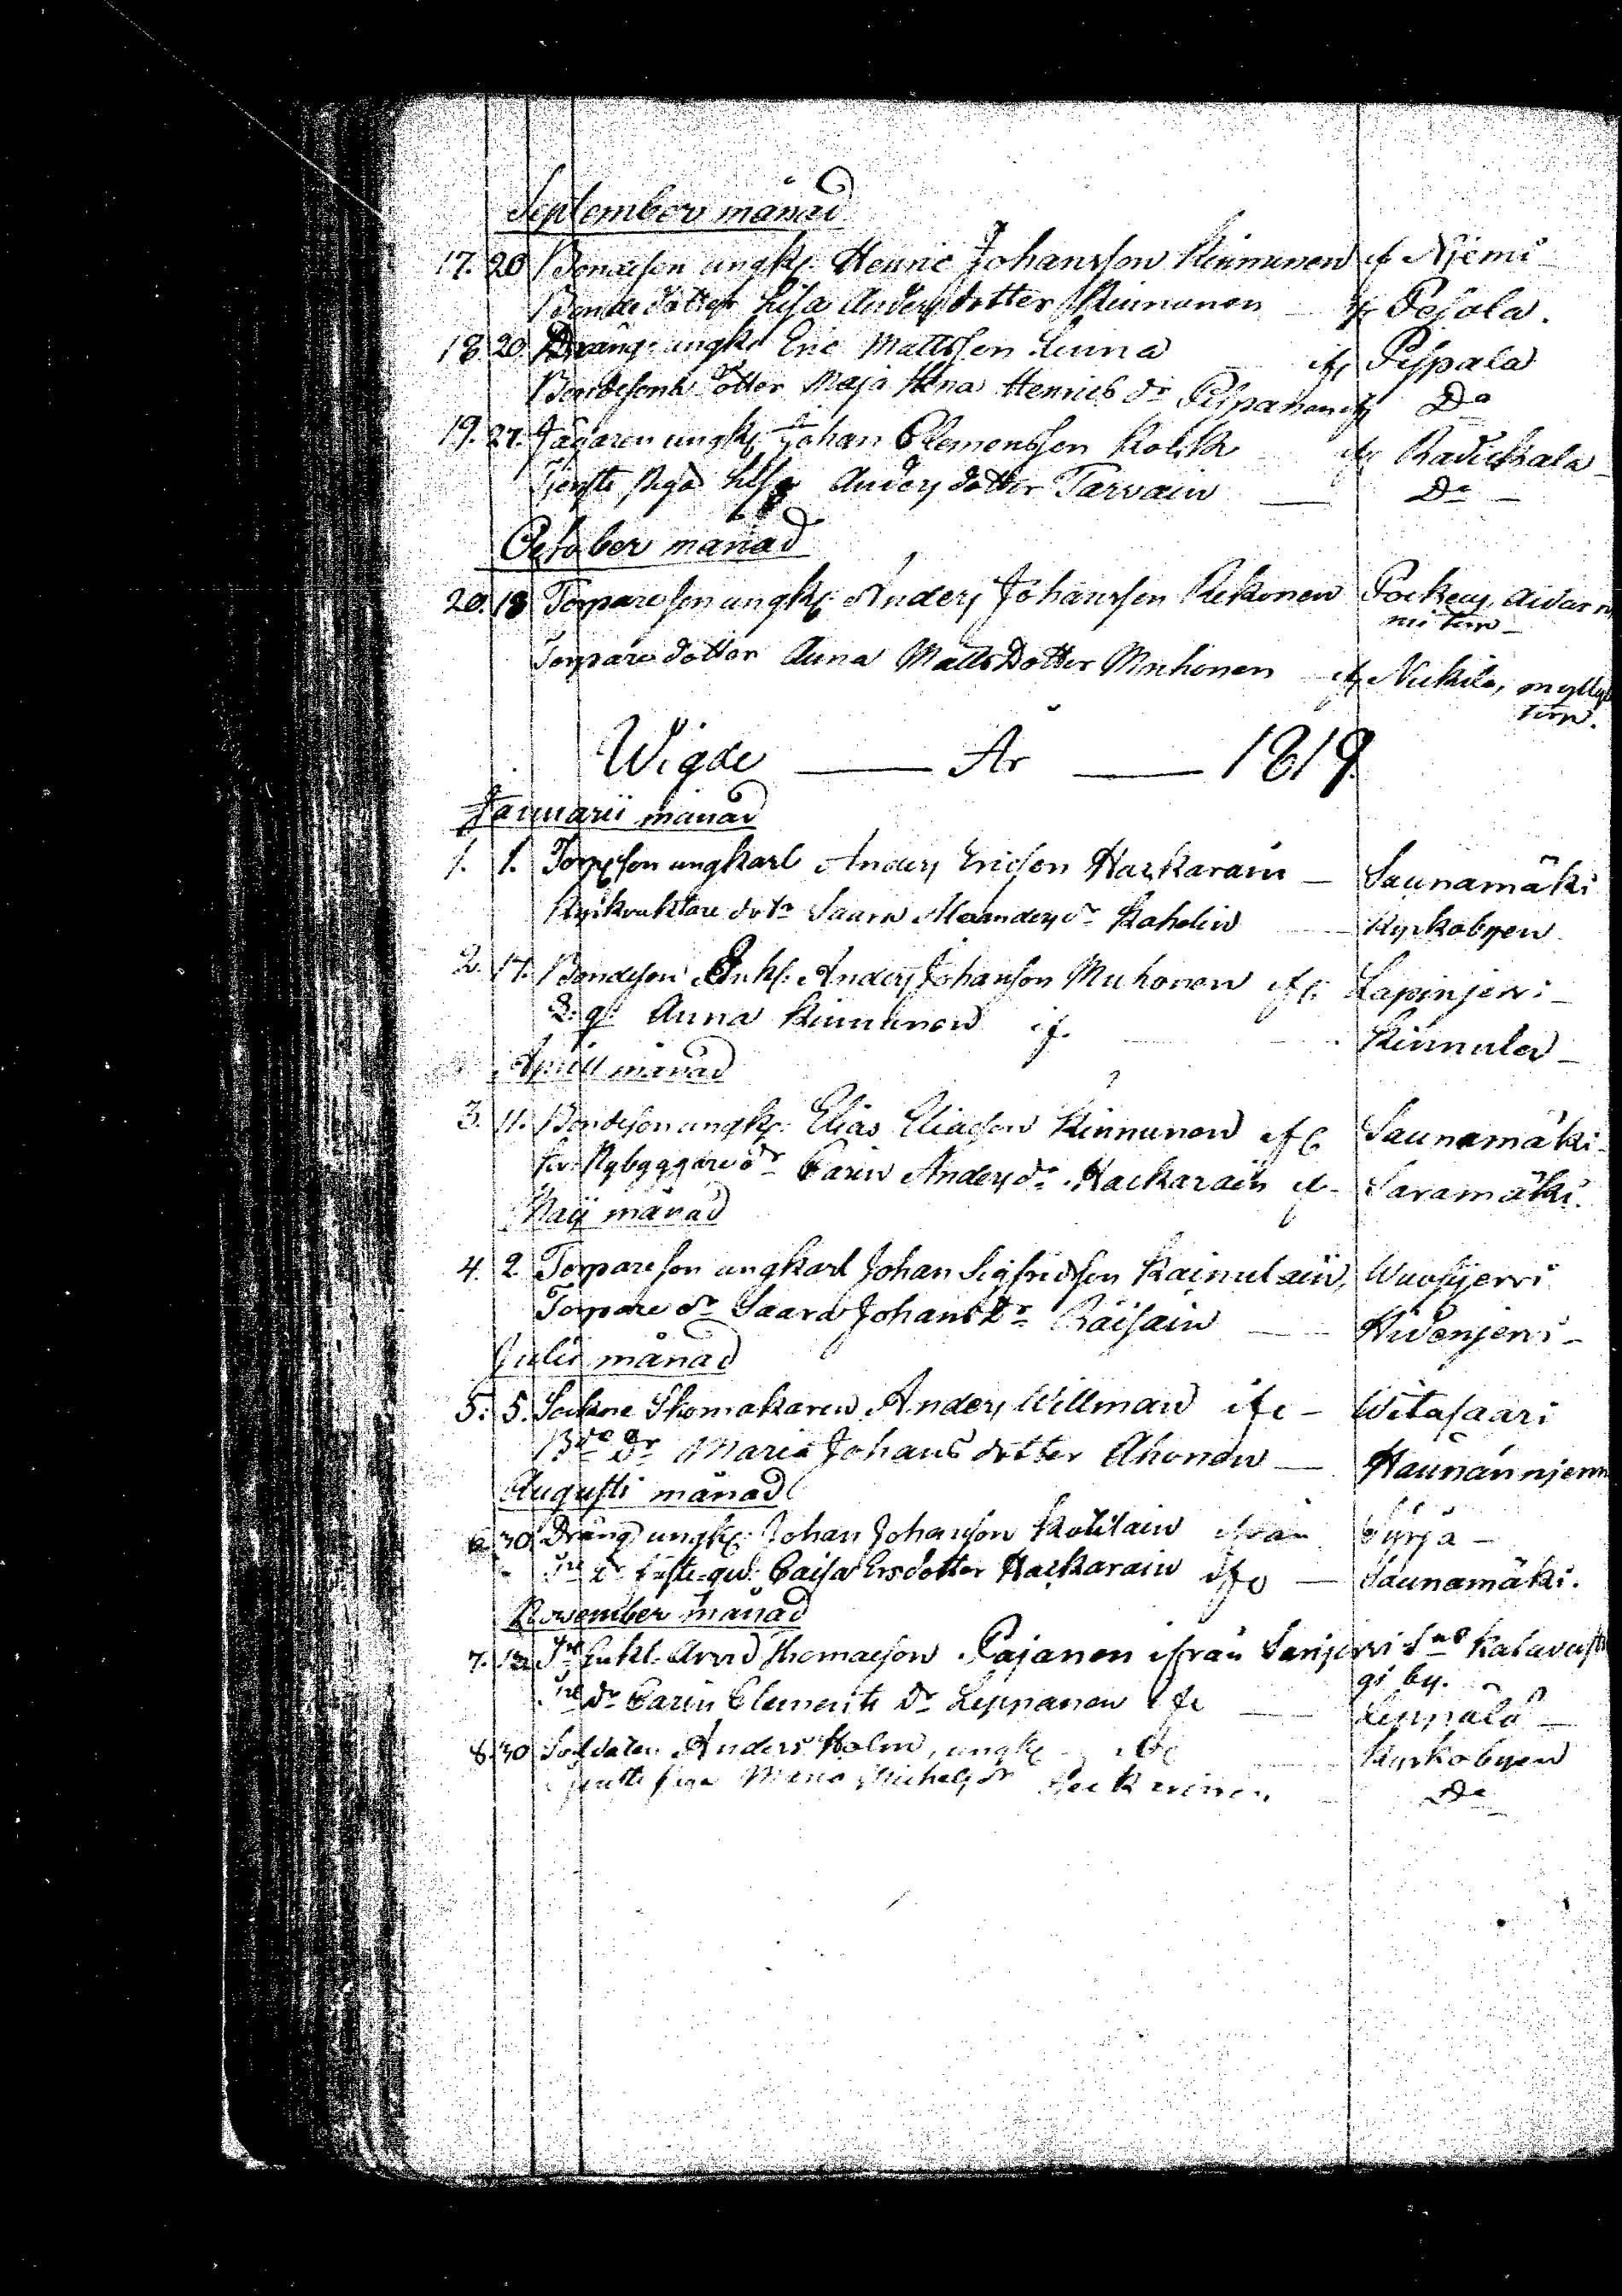 September månad
17. 20 Bondeson ungk. Henric Johansson Kinnunen if Njemi
Bonde dotter Lisa Anders dotter Kinnunen if Pesola.
18 20 Dräng ungk. Eric Mattsson Leina if Pijpala
Bondesons dotter Maja Hena Henrics dr Pijpanen if Do
19. 27. Jägaren ungk. Johan Clemensson Kolik if
Tjenste piga Lisa Anders dotter Tarvain — Do —
October månad
20. 18 Torpareson ungk. Anders Johansson Rekonen
torp
Torpare dotter Anna Matts Dotter Muhonen if Nickila,
torp.
Wigde — År — 1819.
Januarii månad
1. 1. Torpson ungkarl Anders Ericson Hackarain — Saunamäki
Saara dr Kahelin — Kyrkobyen
2. 17. Bondeson Enkl. Anders Johanson Muhonen if Lapinjervi —
Anna Kinnunen if. Kinnula —
Aprill månad
3. 11. Bondeson ungk. Elias Eliason Kinnunen if Saunamäki —
Nybyggare dr Carin Anders dr Hackarain if Saramäki.
Maji månad
4. 2 Torpareson ungkarl Johan Sigfridson Kainulain, Wuosjervi
Torpare dr Saara Johans Dr Räisäin — Hidenjervi —
Julii månad
5. 5. Sockne Skomakaren Anders Willman if — Witasaari
Bde dr Maria Johans dotter Ahonen —
Augusti månad
6 30 Dräng ungk. Johan Johanson Kotilain ifrån Syrjä —
Caisa Ersdotter Hackarain if — Saunamäki.
November månad
7. Enkl. Arvid Thomaeson Pajanen ifrån
by.
dr Carin Clements Dr Leppanen if — Leppälä —
8. 30 Soldaten Anders Holm, ungk. if Kyrkobyen
Tjenste piga Maria Michels dr Do